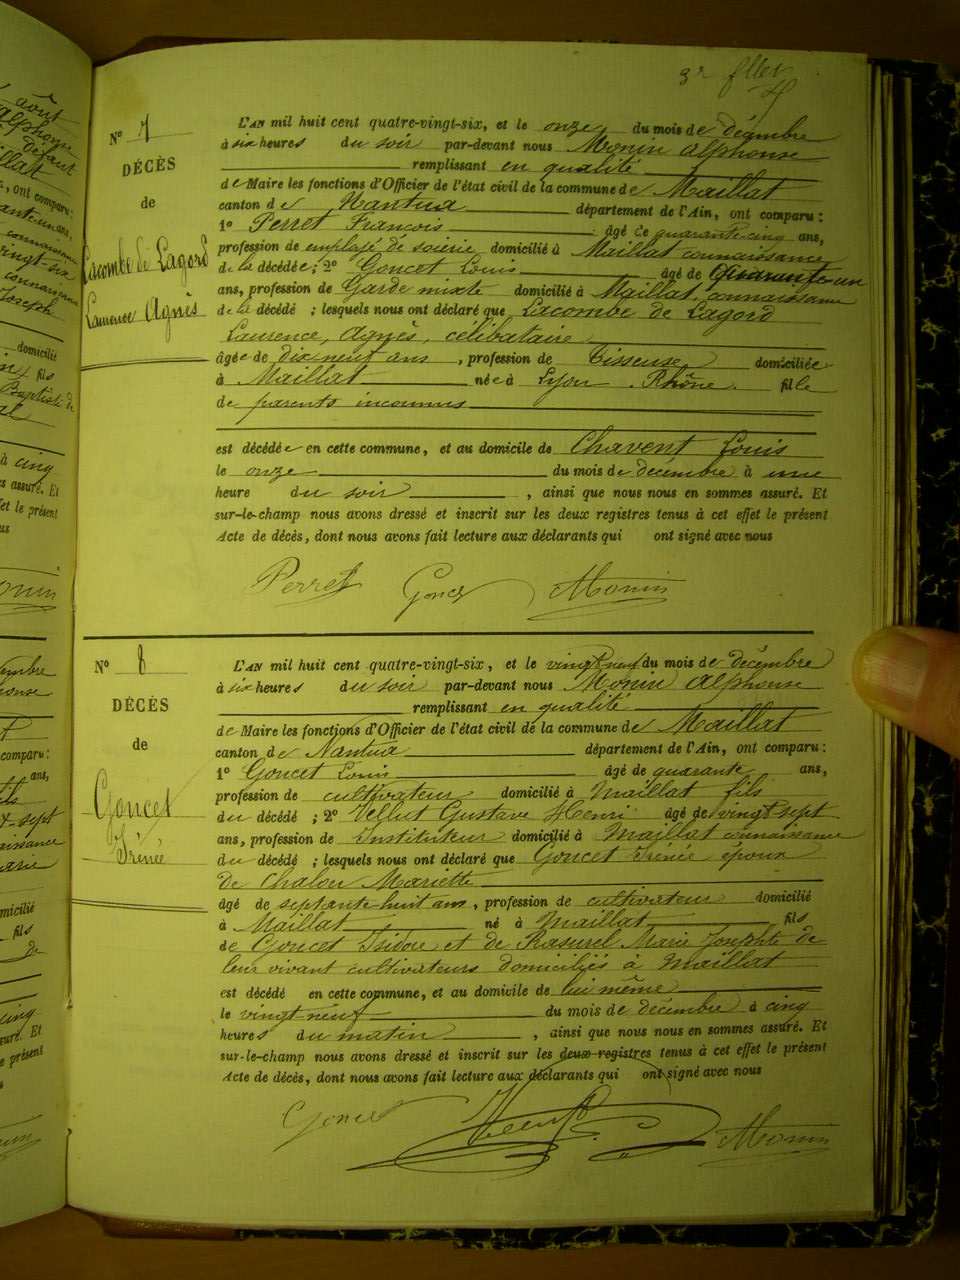 3e fllet
N° 7
DÉCÈS
de
Lacombe de Lagord
Laurence Agnès
L'AN mil huit cent quatre-vingt-six, et le onze du mois de décembre
à six heures du soir par-devant nous Monin Alphonse
remplissant en qualité
de Maire les fonctions d'Officier de l'état civil de la commune de Maillat
canton de Nantua département de l'Ain, ont comparu :
1° Perret François âgé de quarante cinq ans,
profession de employé de soierie domicilié à Maillat connaissance
de la décédée ; 2° Goncet Louis âgé de quarante un
ans, profession de Garde mixte domicilié à Maillat, connaissance
de la décédé ; lesquels nous ont déclaré que Lacombe de Lagord
Laurence, Agnès, célibataire
âgée de dix neuf ans, profession de Tisseuse domiciliée
à Maillat née à Lyon Rhône fille
de parents inconnus
est décédée en cette commune, et au domicile de Chavent Louis
le onze du mois de décembre à une
heure du soir, ainsi que nous nous en sommes assuré. Et
sur-le-champ nous avons dressé et inscrit sur les deux registres tenus à cet effet le présent
Acte de décès, dont nous avons fait lecture aux déclarants qui ont signé avec nous
Perret Goncet Monin
N° 8
DÉCÈS
de
Goncet
Irénée
L'AN mil huit cent quatre-vingt-six, et le vingt neuf du mois de décembre
à six heures du soir par-devant nous Monin Alphonse
remplissant en qualité
de Maire les fonctions d'Officier de l'état civil de la commune de Maillat
canton de Nantua département de l'Ain, ont comparu :
1° Goncet Louis âgé de quarante ans,
profession de cultivateur domicilié à Maillat fils
du décédé ; 2° Vellut Gustave Henri âgé de vingt sept
ans, profession de Instituteur domicilié à Maillat connaissance
du décédé ; lesquels nous ont déclaré que Goncet Irénée époux
de Chalon Mariette
âgé de septante huit ans, profession de cultivateur domicilié
à Maillat né à Maillat fils
de Goncet Isidore et de Rasurel Marie Josephte de
leur vivant cultivateurs domiciliés à Maillat
est décédé en cette commune, et au domicile de lui même
le vingt neuf du mois de décembre à cinq
heures du matin, ainsi que nous nous en sommes assuré. Et
sur-le-champ nous avons dressé et inscrit sur les deux registres tenus à cet effet le présent
Acte de décès, dont nous avons fait lecture aux déclarants qui ont signé avec nous
Goncet Monin